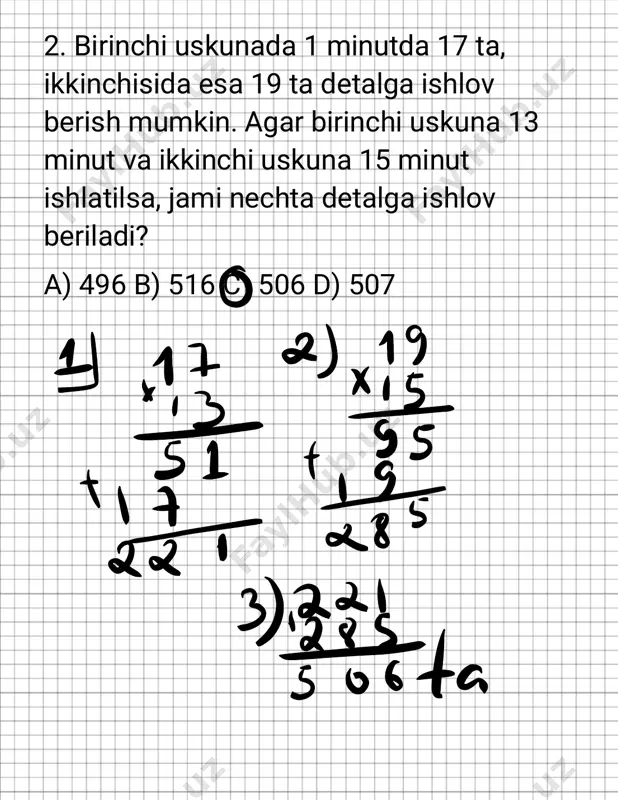 2. Birinchi uskunada 1 minutda 17 ta,
ikkinchisida esa 19 ta detalga ishlov
berish mumkin. Agar birinchi uskuna 13
minut va ikkinchi uskuna 15 minut
ishlatilsa, jami nechta detalga ishlov
beriladi?
A) 496 B) 516 C) 506 D) 507
1) 17
× 13
51
+ 17
221
2) 19
× 15
95
+ 19
285
3) 221
285
506 ta
FaylHub.uz
FaylHub.uz
FaylHub.uz
uz
uz